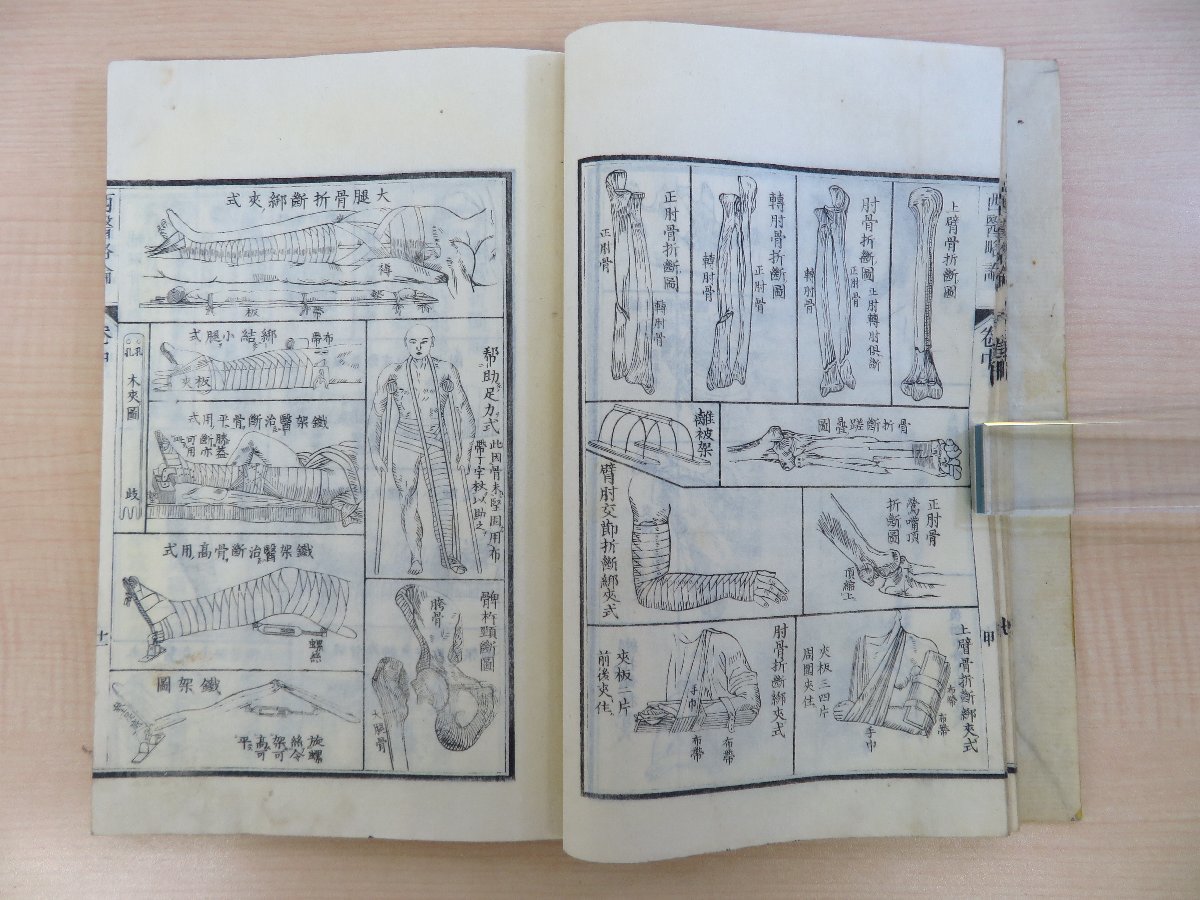 西醫略論
卷中
甲
上臂骨折斷圖
肘骨折斷圖
正肘轉肘俱斷
正肘骨
轉肘骨
轉肘骨折斷圖
正肘骨
轉肘骨
正肘骨折斷圖
正肘骨
轉肘骨
骨折斷蹉疊圖
離被架
正肘骨
鶯嘴頂
折斷圖
頂縮上
臂肘交節折斷綁夾式
上臂骨折斷綁夾式
夾板三四片
周圍夾住
布帶
布帶
手巾
肘骨折斷綁夾式
夾板二片
前後夾住
手巾
布帶
布帶
大腿骨折斷綁夾式
褥
帶
板
幫助足力式
此因骨未堅固用布
帶丁字杖以助之
綁結小腿式
布帶
夾板
孔
孔
木夾圖
歧
鐵架醫治斷骨平用式
膝蓋
斷亦
可用
此
鐵架醫治斷骨高用式
螺絲
髀杵頸斷圖
胯骨
大腿骨
鐵架圖
旋螺
絲令
架可
高可
平
西醫略論
卷中
十一